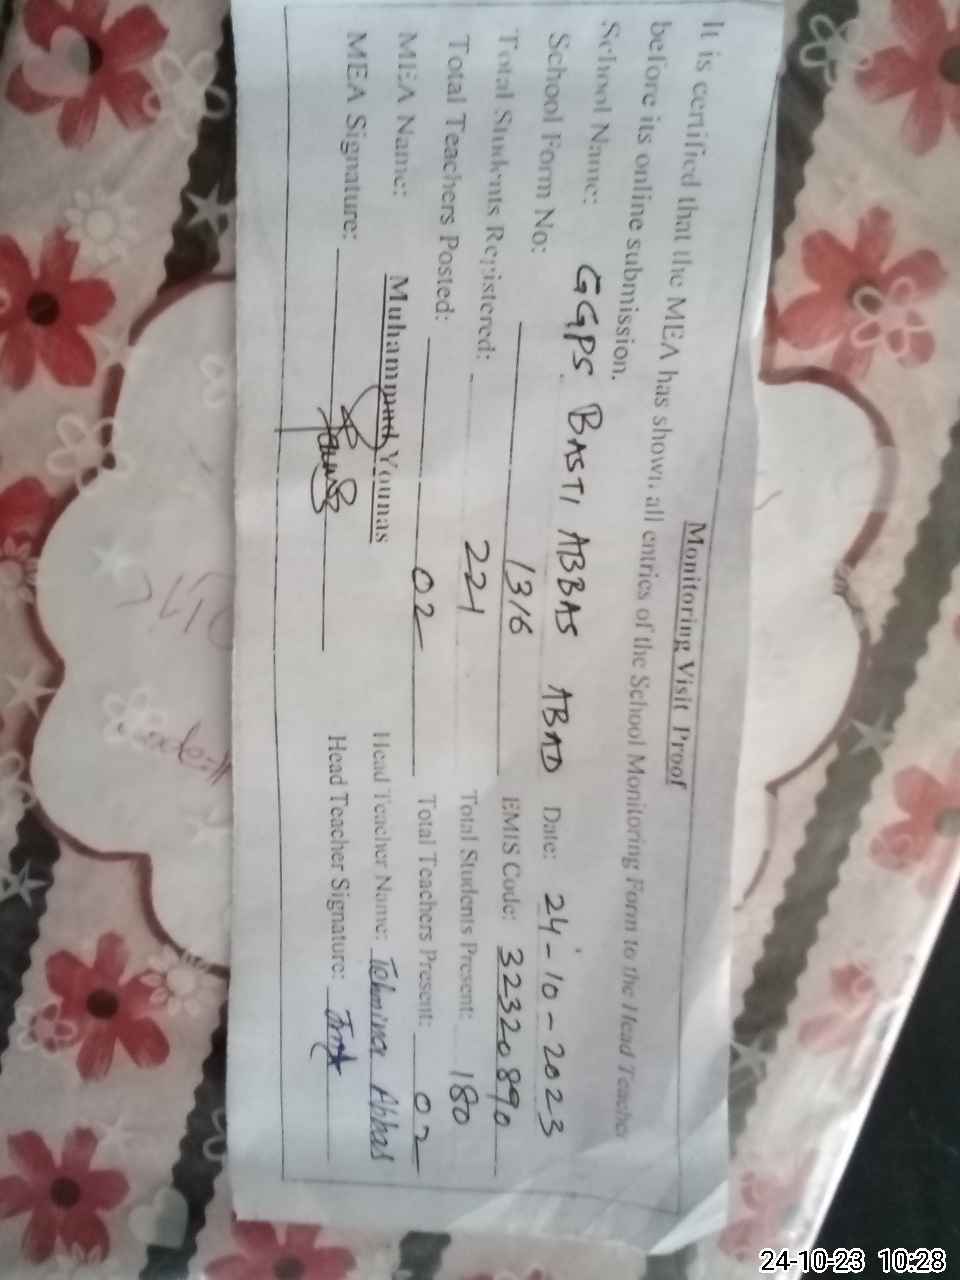 Monitoring Visit Proof
It is certified that the MEA has shown all entries of the School Monitoring Form to the Head Teacher
before its online submission.
School Name: GGPS BASTI ABBAS ABAD Date: 24-10-2023
School Form No: 1316 EMIS Code: 32320890
Total Students Registered: 221 Total Students Present: 180
Total Teachers Posted: 02 Total Teachers Present: 02
MEA Name: Muhammad Younas Head Teacher Name: Tahmina Abbas
MEA Signature: Head Teacher Signature:
24-10-23 10:28